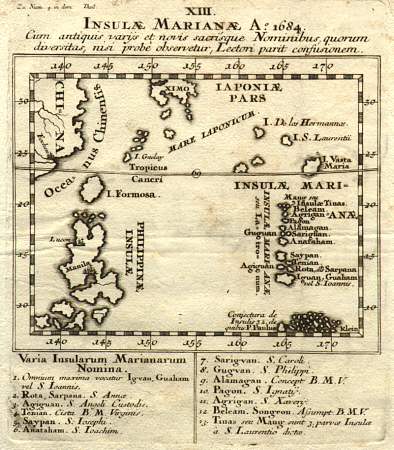 Zu Num. 4. in dem Theil
XIII.
INSULÆ MARIANÆ Aº. 1684.
Cum antiquis varijs et novis sacrisque Nominibus, quorum
diversitas, nisi probe observetur, Lectori parit confusionem.
140 150 160 170
CHINA
XIMO
IAPONIÆ
PARS
30
Oceanus Chinensis
MARE IAPONICUM.
I. De las Hermanas
I. S. Laurentii
25
I. Vasta
Maria
Tropicus
Cancri
69
I. Formosa.
INSULÆ MARI-
ANÆ
20
Maug seu
Insulæ Tinas.
Beleam.
Agrigan
Pagon
Alamagan
Guguan
Sarigüan
Anatahan
INSULÆ MARIANÆ
seu Latronum
PHILIPPINÆ
INSULÆ
Manila
15
Saypan.
Tenian.
Agiguan
Rota seu Sarpana
Iguan, Guaham
vel S. Ioannis.
10
Conjectura de
Insulis 32. de
quibus P. Paulus
Klein
140 150 160 170
Varia Insularum Marianarum
Nomina.
1. Omnium maxima vocatur Iguan, Guaham
vel S. Ioannis.
2. Rota, Sarpana. S. Anna
3. Agiguan. S. Angeli Custodis.
4. Tenian. Cista B. M. Virginis.
5. Saypan. S. Iosephi.
6. Anatahan. S. Ioachim
7. Sarigvan. S. Caroli.
8. Gugvan. S. Philippi.
9. Alamagan. Concept. B. M. V.
10. Pagon. S. Ignatij.
11. Agrigan. S. Xaverij.
12. Beleam. Songron. Assumpt. B. M. V.
13. Tinas seu Maug sunt 3. parvæ Insulæ
à S. Laurentio dictæ.